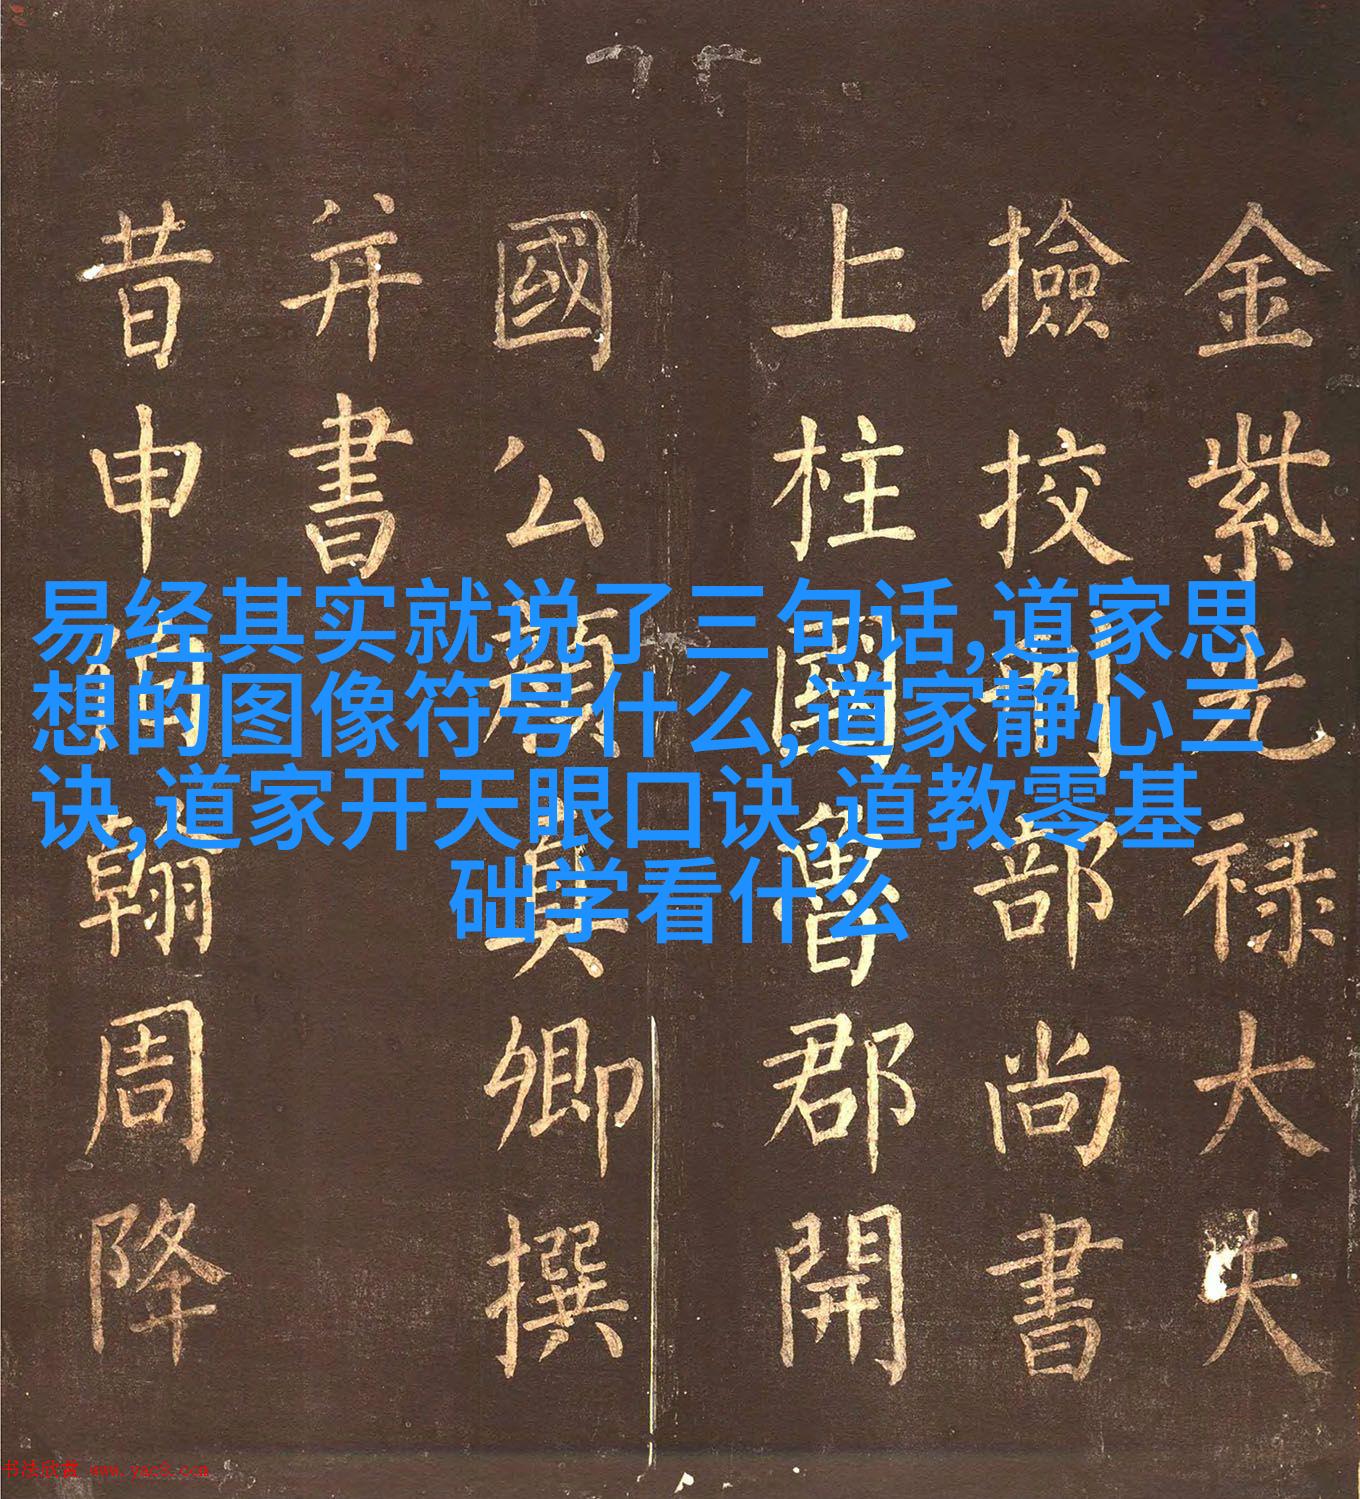 金紫光禄大夫
撿挍刑部尚書
上柱國魯郡開
國公顔真卿撰
并書
昔申伯翰周降
易经其实就说了三句话,道家思
想的图像符号什么,道家静心三
诀,道家开天眼口诀,道教零基
础学看什么
书法欣赏 www.yac8.com